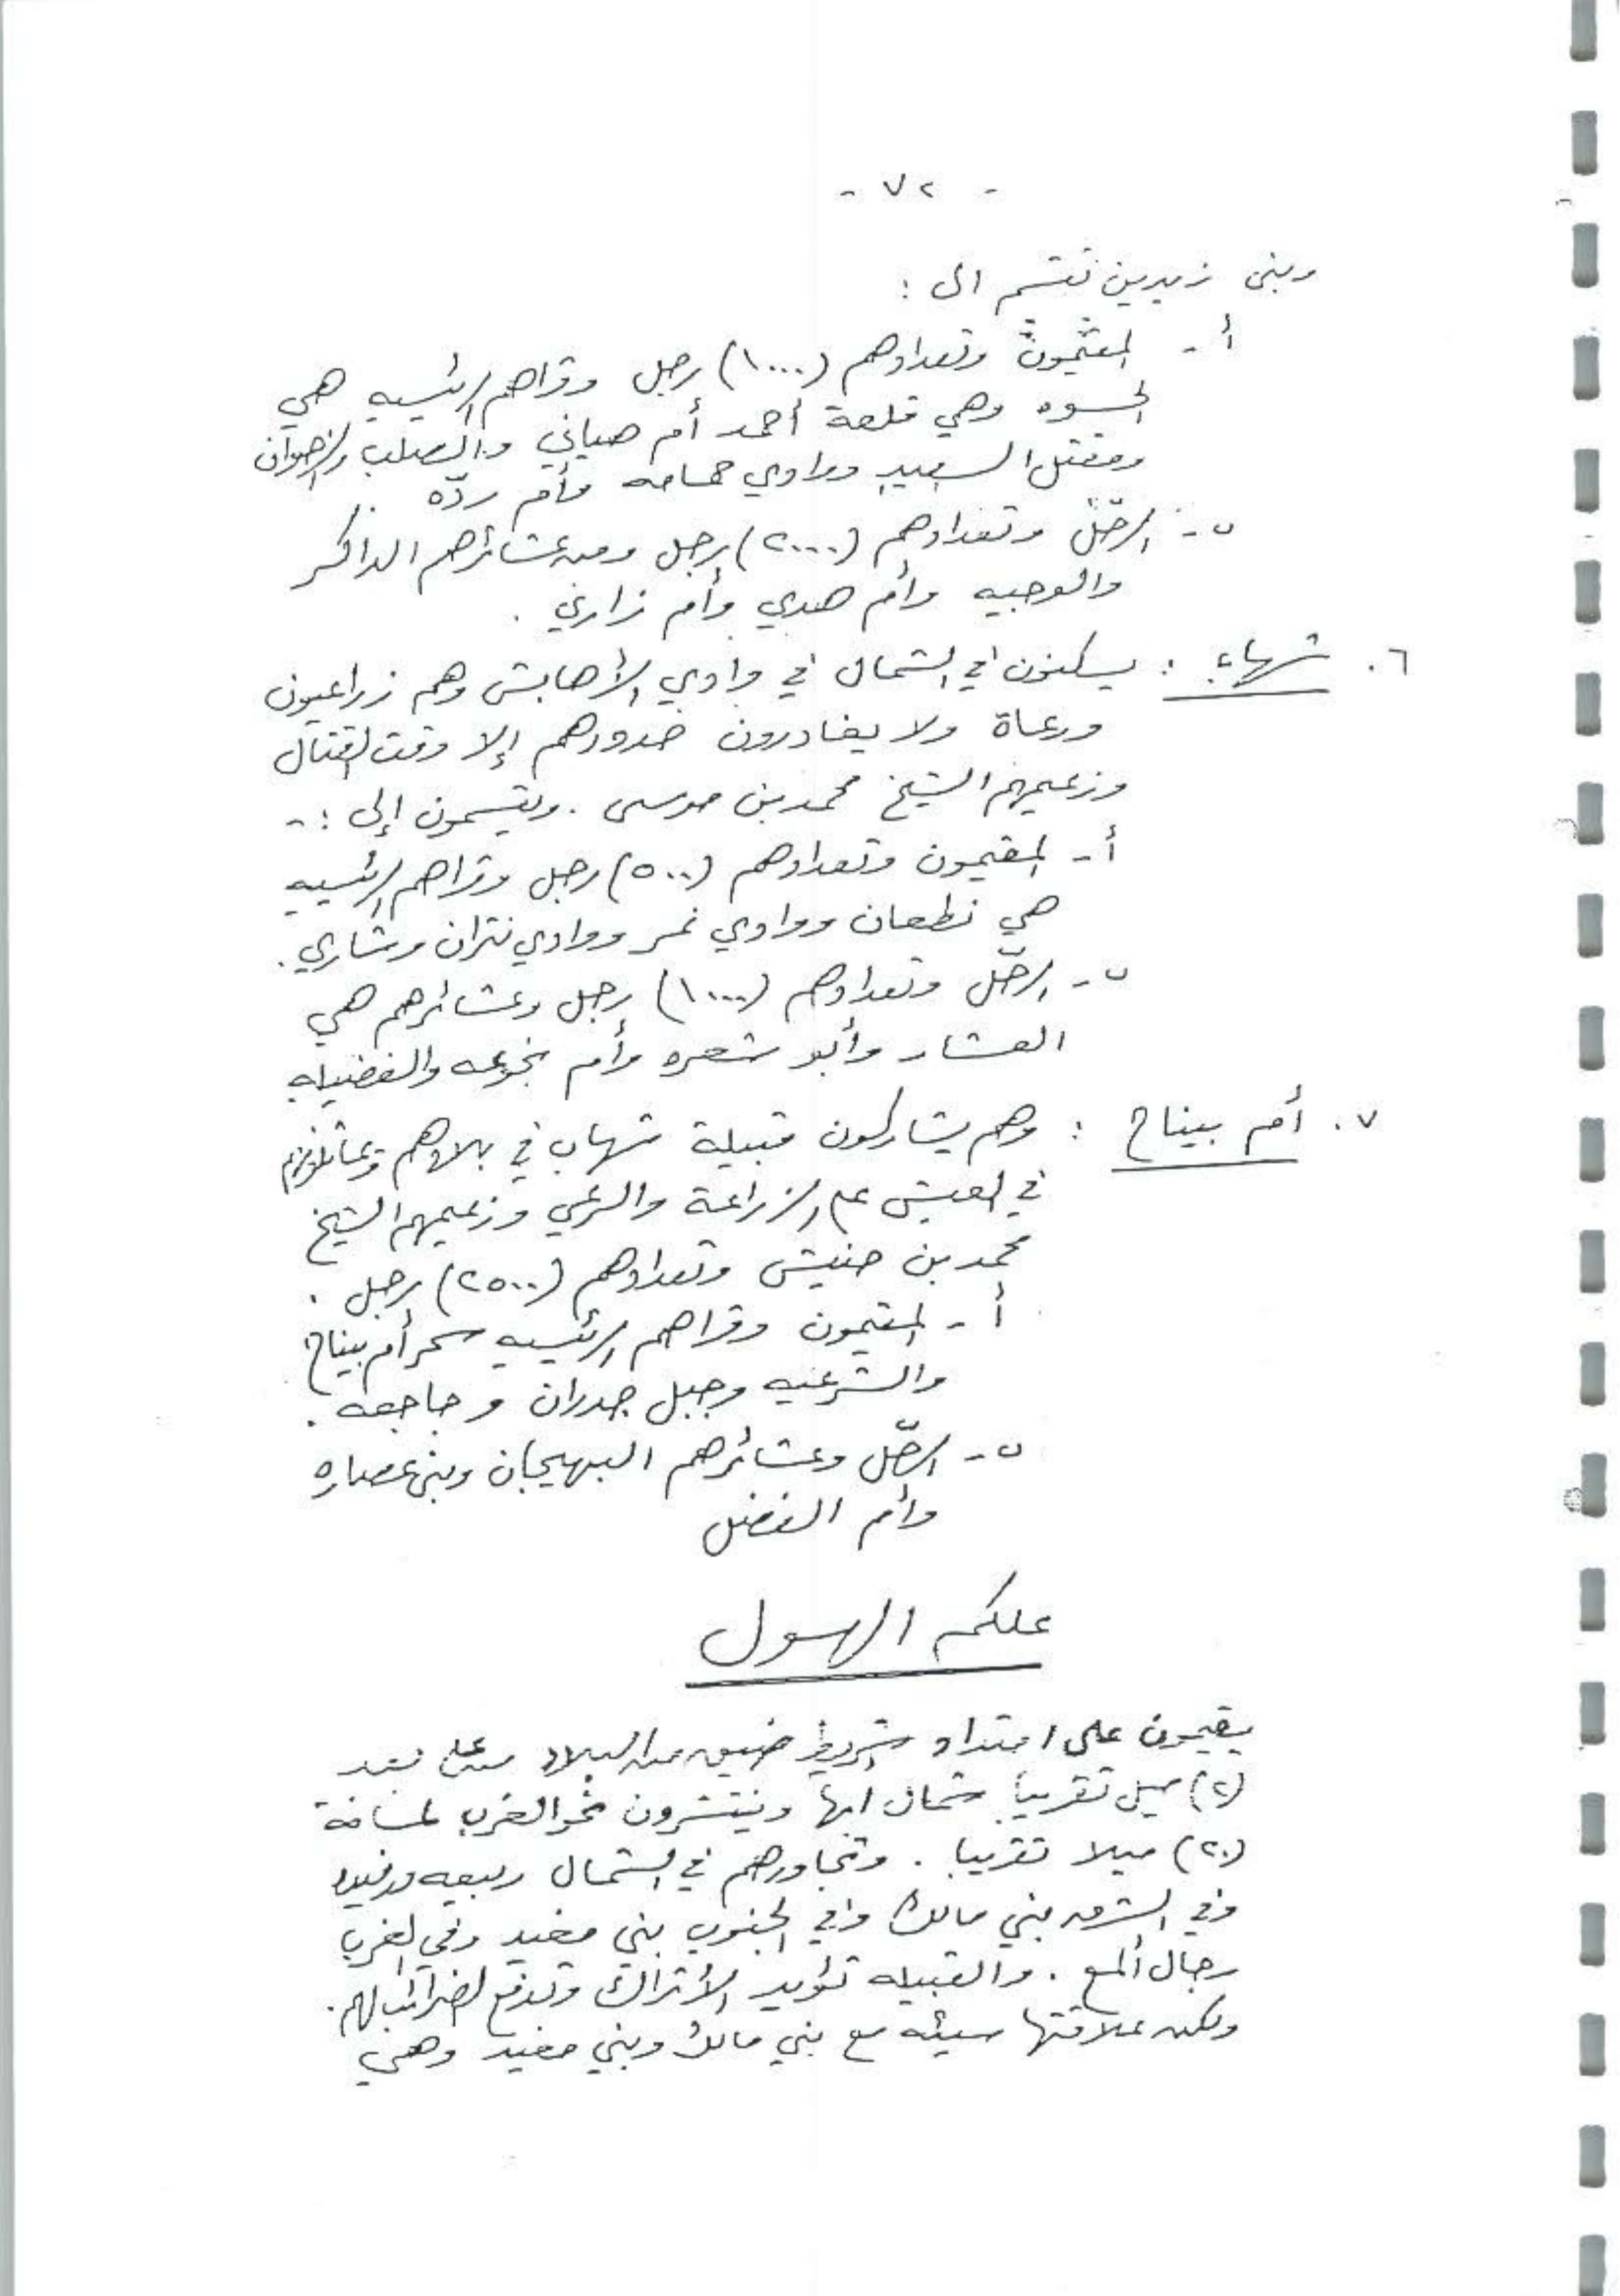 - ٧٢ -
وبنى زيدين تنقسم الى :
أ - المقيمون وتعدادهم (١٠٠٠) رجل وقراهم الرئيسيه هي
الحسوه وهي قلعة أحمد أم صياني والصلب والرجوان
ومقتل السبيب ووادي حمامه وأم ردّه
ب - الرحّل وتعدادهم (٢٠٠٠) رجل ومن عشائرهم الداكر
والوجيه وأم هدي وأم زاري .
٦. شهاب : يسكنون في الشمال في وادي الأهابش وهم زراعيون
ورعاة ولا يغادرون حدودهم إلا وقت القتال
وزعيمهم الشيخ محمد بن موسى . وينقسمون إلى :-
أ - المقيمون وتعدادهم (٥٠٠) رجل وقراهم الرئيسيه
هي نطعان ووادي نمر ووادي نتران وشاري .
ب - الرحّل وتعدادهم (١٠٠٠) رجل وعشائرهم هي
العشار وأبو شعره وأم نجوعه والفضيله
٧. أم بيناح : وهم يشاركون قبيلة شهاب في بلادهم ويماثلونهم
في العيش على الزراعة والرعي وزعيمهم الشيخ
محمد بن حنيش وتعدادهم (٢٥٠٠) رجل .
أ - المقيمون وقراهم الرئيسيه سحر أم بيناح
والشرعيه وجبل جدران و جاجعه .
ب - الرحّل وعشائرهم البهيجان وبنى عصاره
وأم الفضل
علكم الهول
يقيمون على امتداد شريط ضيق من البلاد على بعد
(٢) ميل تقريباً شمال ابها وينتشرون نحو الغرب لمسافة
(٢٠) ميلا تقريبا . وتجاورهم في الشمال ربيعه ورفيده
وفي الشرق بني مالك وفي الجنوب بني مغيد وفي الغرب
رجال ألمع . والقبيله تؤيد الأتراك وتدفع الضرائب لهم .
ولكن علاقتها سيئه مع بني مالك وبني مغيد وهي